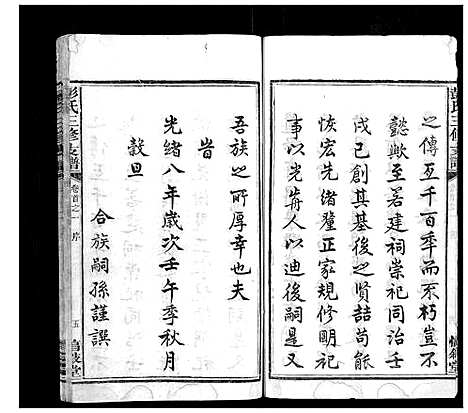 之傳亙千百年而不朽豈不
懿歟至若建祠崇祀同治壬
戌已創其基後之賢喆苟能
恢宏先緒釐正家規修明祀
事以光前人以迪後嗣是又
吾族之所厚幸也夫
旹
光緒八年歲次壬午季秋月
穀旦
合族嗣孫謹譔
彭氏三修支譜
卷首之一
序
五
彭氏三修支譜